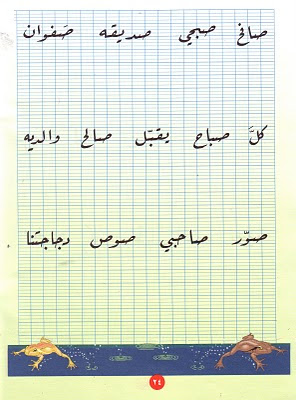 صافح صبحي صديقه صَفوان
كلَّ صباح يقبّل صالح والديه
صوّر صاحبي صوص دجاجتنا
٢٤